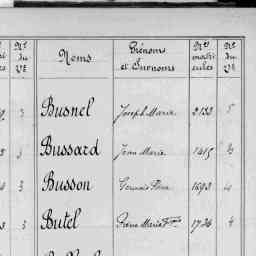 Nos du VE Noms Prénoms et Surnoms Nos matricules Nos du VE
3 Busnel Joseph Marie 2133 5
3 Bussard Jean Marie 1415 3
3 Busson 1693 4
3 Butel Pierre Marie Fois 1736 4